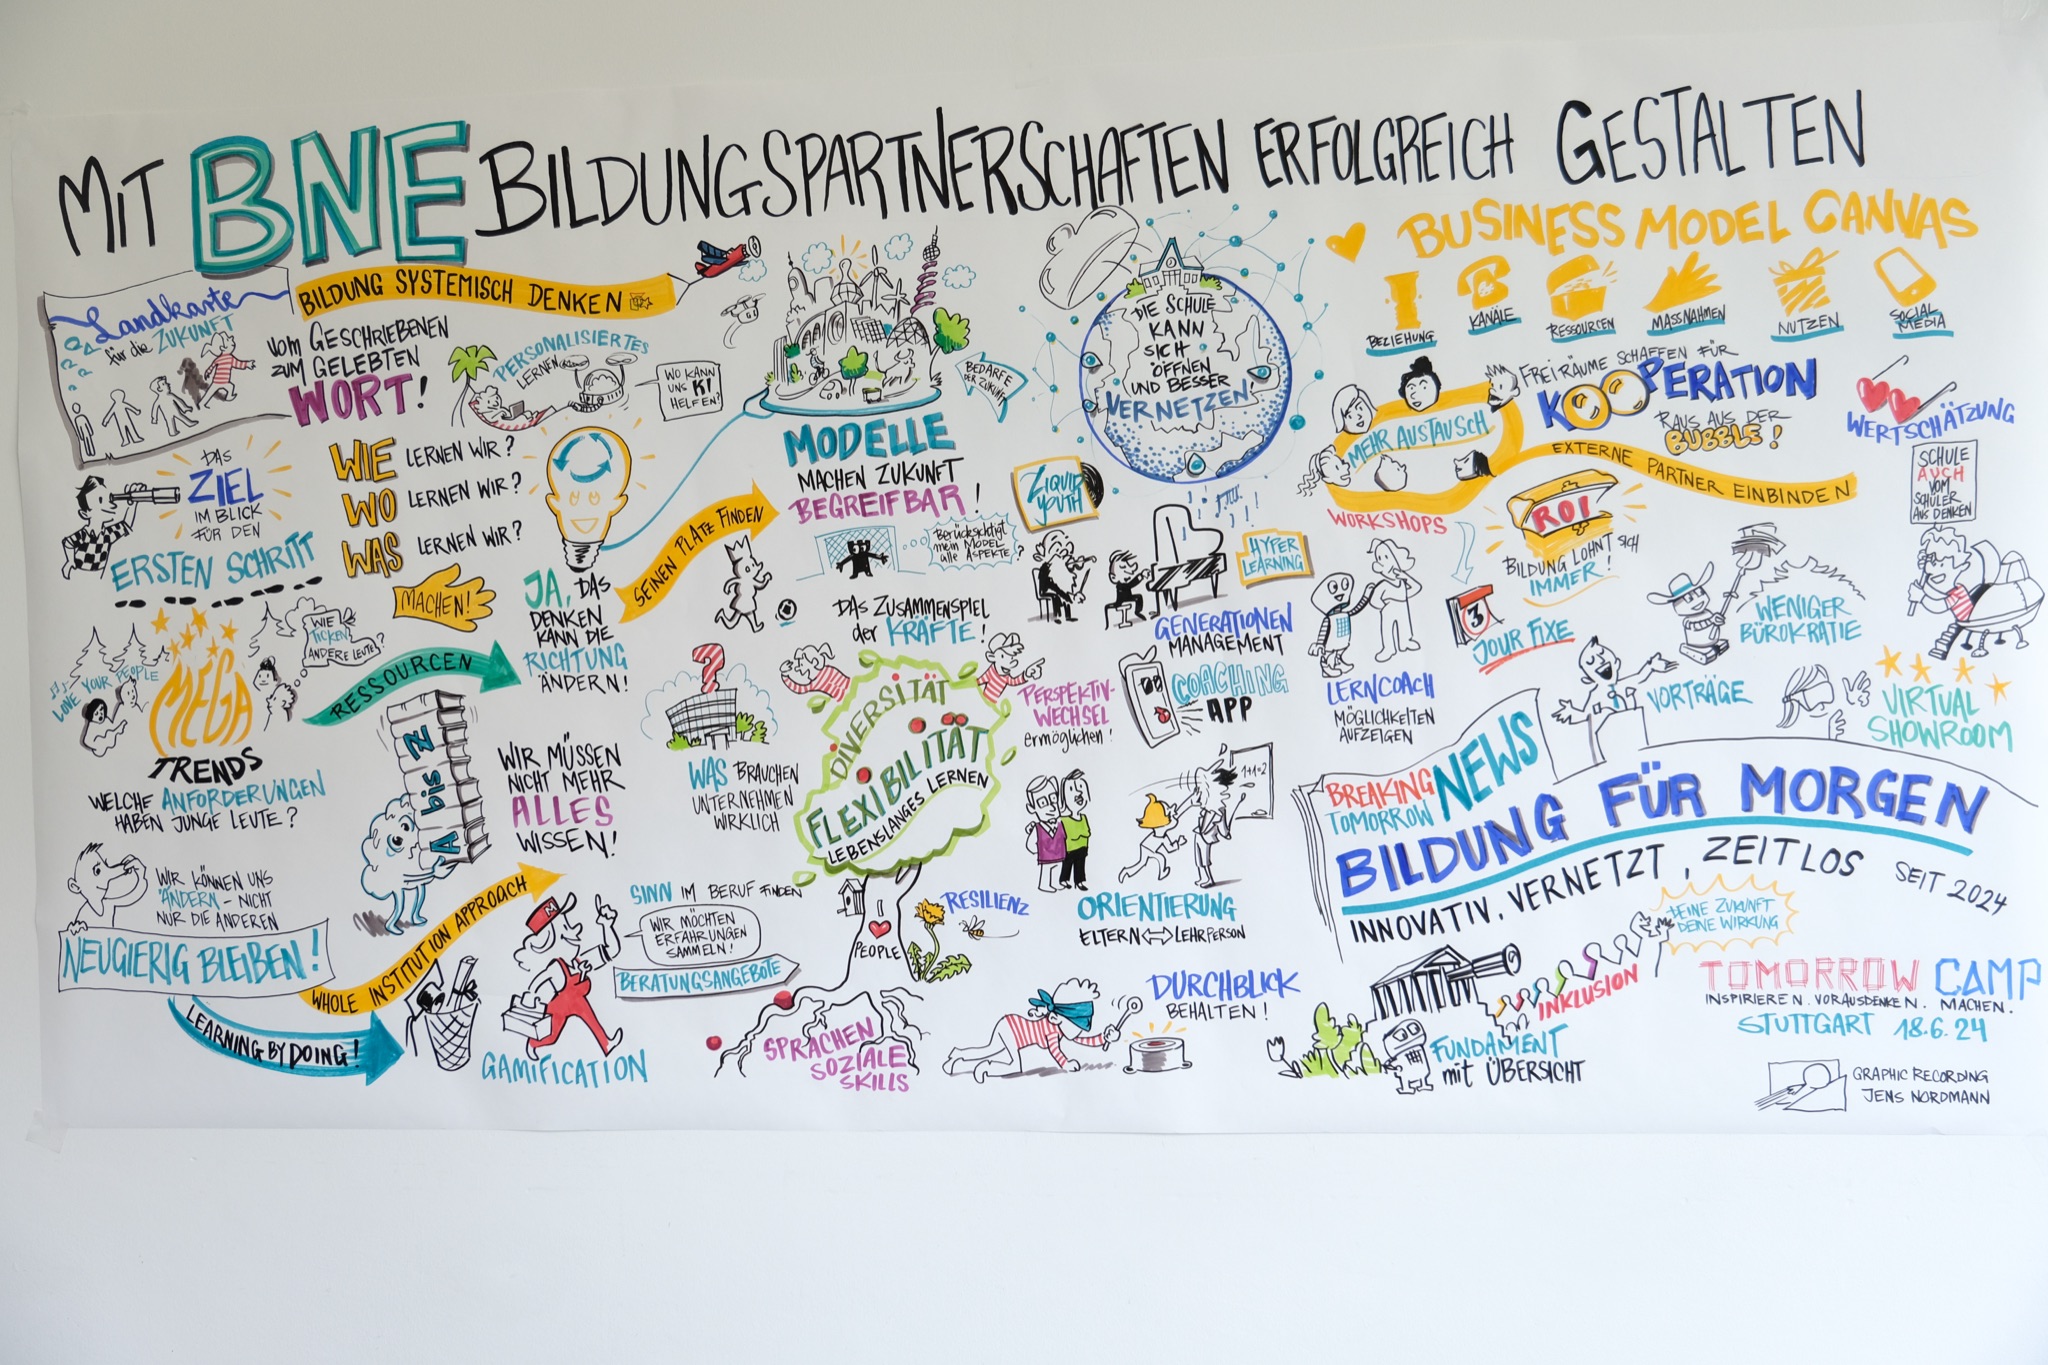 MIT BNE BILDUNGSPARTNERSCHAFTEN ERFOLGREICH GESTALTEN
BILDUNG SYSTEMISCH DENKEN
Landkarte
für die ZUKUNFT
VOM GESCHRIEBENEN
ZUM GELEBTEN
WORT!
PERSONALISIERTES
LERNEN
WO KANN
UNS KI
HELFEN?
DAS
ZIEL
IM BLICK
FÜR DEN
ERSTEN SCHRITT
WIE LERNEN WIR?
WO LERNEN WIR?
WAS LERNEN WIR?
MACHEN!
JA, DAS
DENKEN
KANN DIE
RICHTUNG
ÄNDERN!
SEINEN PLATZ FINDEN
MODELLE
MACHEN ZUKUNFT
BEGREIFBAR!
BEDARFE
DER ZUKUNFT
Berücksichtigt
mein MODEL
alle ASPEKTE?
DAS ZUSAMMENSPIEL
der KRÄFTE!
DIE SCHULE
KANN
SICH
ÖFFNEN
UND BESSER
VERNETZEN!
BUSINESS MODEL CANVAS
BEZIEHUNG
KANÄLE
RESSOURCEN
MASSNAHMEN
NUTZEN
SOCIAL
MEDIA
MEHR AUSTAUSCH
FREIRÄUME SCHAFFEN FÜR
KOOPERATION
RAUS AUS DER
BUBBLE!
WERTSCHÄTZUNG
EXTERNE PARTNER EINBINDEN
SCHULE
AUCH
VOM
SCHÜLER
AUS DENKEN
WORKSHOPS
ROI
BILDUNG LOHNT SICH
IMMER!
3
JOUR FIXE
WENIGER
BÜROKRATIE
VORTRÄGE
VIRTUAL
SHOWROOM
LIQUID
YOUTH
HYPER
LEARNING
GENERATIONEN
MANAGEMENT
COACHING
APP
LERNCOACH
MÖGLICHKEITEN
AUFZEIGEN
PERSPEKTIV-
WECHSEL
ermöglichen!
1+1=2
ORIENTIERUNG
ELTERN LEHRPERSON
WIE
TICKEN
ANDERE LEUTE?
LOVE YOUR PEOPLE
MEGA
TRENDS
WELCHE ANFORDERUNGEN
HABEN JUNGE LEUTE?
RESSOURCEN
A bis Z
WIR MÜSSEN
NICHT MEHR
ALLES
WISSEN!
?
WAS BRAUCHEN
UNTERNEHMEN
WIRKLICH
DIVERSITÄT
FLEXIBILITÄT
LEBENSLANGES LERNEN
I
PEOPLE
RESILIENZ
SPRACHEN
SOZIALE
SKILLS
WIR KÖNNEN UNS
ÄNDERN - NICHT
NUR DIE ANDEREN
NEUGIERIG BLEIBEN!
WHOLE INSTITUTION APPROACH
LEARNING BY DOING!
M
GAMIFICATION
SINN IM BERUF FINDEN
WIR MÖCHTEN
ERFAHRUNGEN
SAMMELN!
BERATUNGSANGEBOTE
DURCHBLICK
BEHALTEN!
BREAKING
TOMORROW NEWS
BILDUNG FÜR MORGEN
INNOVATIV, VERNETZT, ZEITLOS SEIT 2024
DEINE ZUKUNFT
DEINE WIRKUNG
INKLUSION
FUNDAMENT
mit ÜBERSICHT
TOMORROW CAMP
INSPIRIEREN. VORAUSDENKEN. MACHEN.
STUTTGART 18.6.24
GRAPHIC RECORDING
JENS NORDMANN